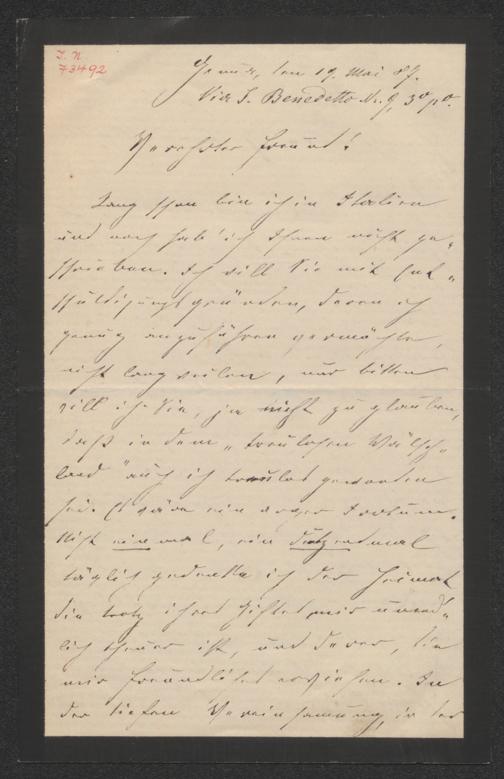 I. N.
73492
Genua, den 19. Mai 87.
Via S. Benedetto Nr. 9, 3º pº.
Verehrter Freund!
Lang schon bin ich in Italien
und noch hab' ich Ihnen nicht ge-
schrieben. Ich will Sie mit Ent-
schuldigungsgründen, deren ich
genug anzuführen vermöchte,
nicht langweilen, nur bitten
will ich Sie, ja nicht zu glauben,
daß in dem „treulosen Wälsch-
land" auch ich treulos geworden
sei. Es wäre ein arger Irrtum.
Nicht einmal, ein dutzendmal
täglich gedenke ich der Heimat
die trotz ihres mir unend-
lich theuer ist, und derer, die
mir Freundliches erwiesen. In
der tiefen Vereinsamung, in der